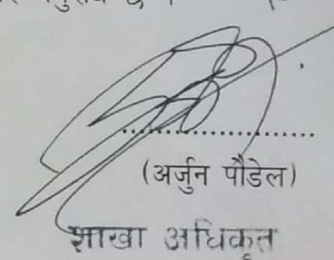 (अर्जुन पौडेल)
शाखा अधिकृत